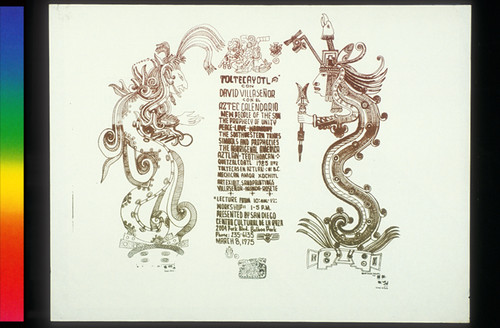 TOLTECAYOTL
CON
DAVID VILLASEÑOR
CON EL
AZTEC CALENDARIO
NEW PEOPLE OF THE SUN
THE PROPHECY OF UNITY
PEACE-LOVE-HARMONY
THE SOUTHWESTERN TRIBES
SYMBOLS AND PROPHECIES
THE ABORIGENAL AMERICA
AZTLAN-TEOTIHUACAN
QUETZALCOATL 1985
TOLTECAS IN AZTLAN IN B.C.
MEXICAN AMOR XOCHITL
ART EXHIBIT SANDPAINTINGS
VILLASEÑOR
LECTURE FROM 10:AM-12:
WORKSHOP 1-5 P.M.
PRESENTED BY SAN DIEGO
CENTRO CULTURAL DE LA RAZA
2004 Park Blvd. Balboa Park
Phone: 235-6135
MARCH 8, 1975